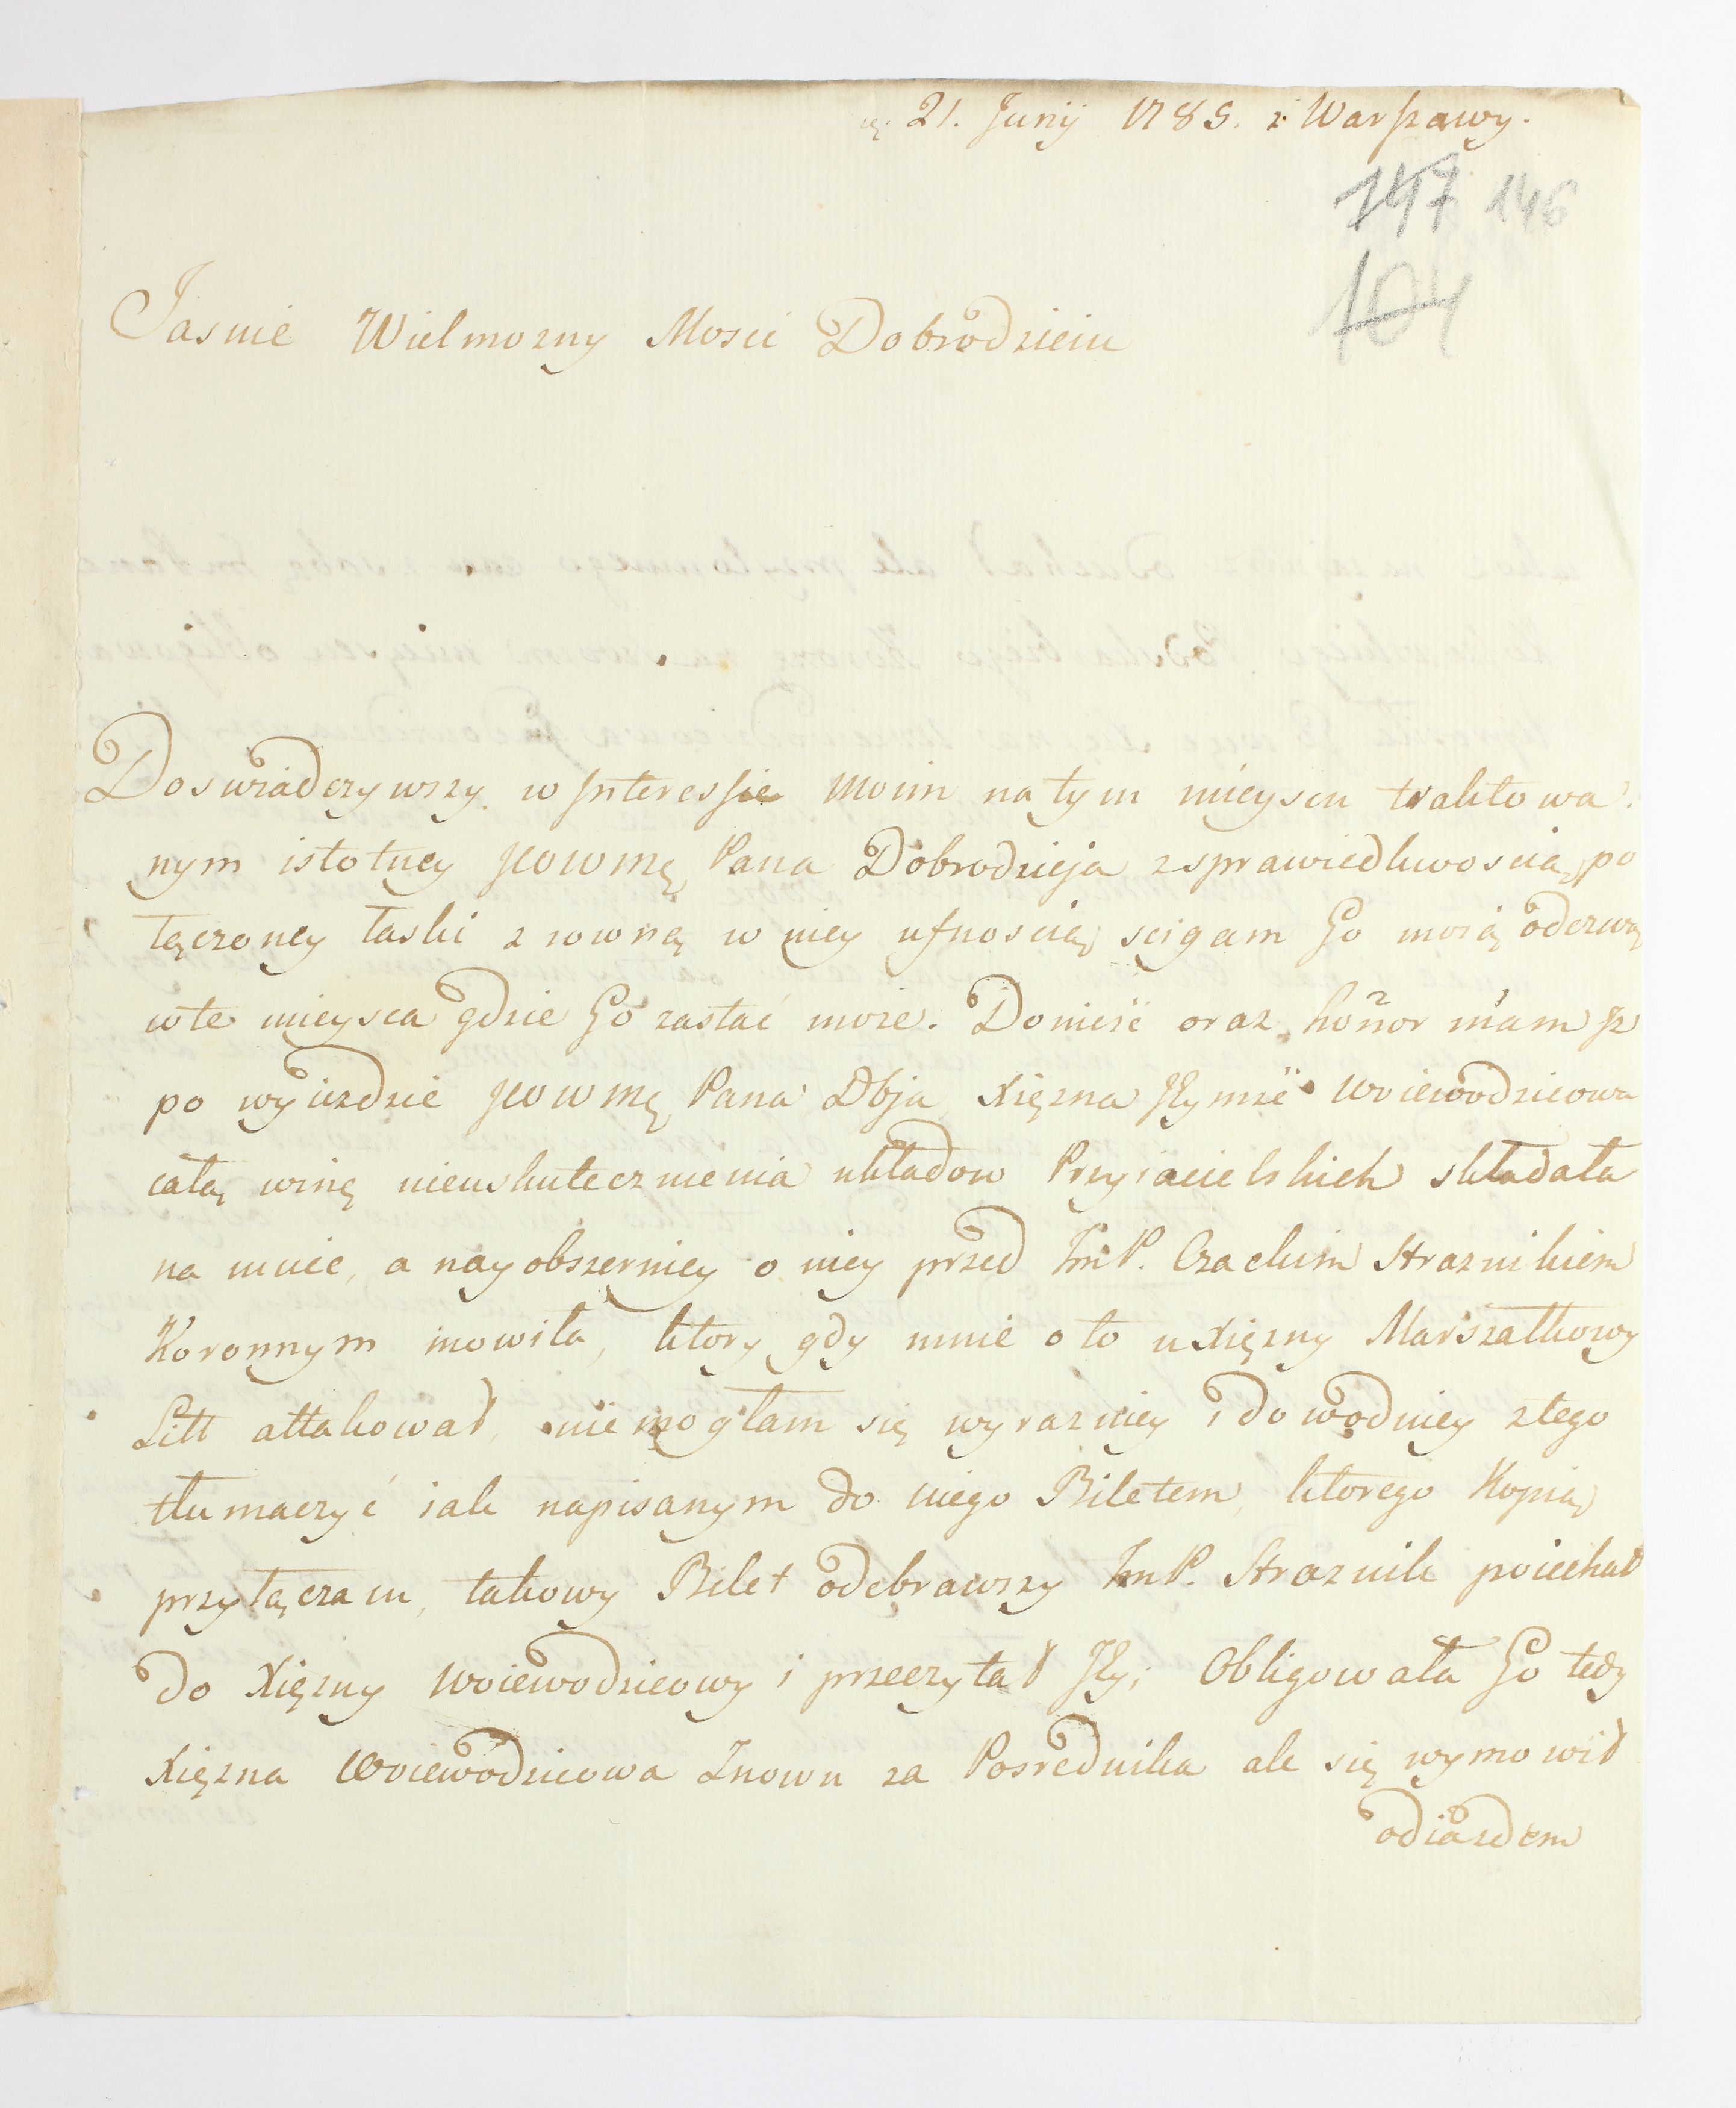 21. Junij 1785. z Warszawy.
147 146
104
Jasnie Wielmozny Mosci Dobrodzieiu
Doswiadczywszy w Jnteressie moim na tym mieyscu traktowa-
nym istotney JWWMę Pana Dobrodzieja z sprawiedliwoscią po
łączoney łaski z rowną w niey ufnoscią scigam Go moią odezwą
w te mieysca gdzie Go zastać może. Donieść oraz honnor mam Jż
po wyiezdzie JWWMę Pana Dbja Xięzna Jłymść Woiewodzicowa
całą winę nieuskutecznienia układow Przyiacielskich składała
na mnie, a nayobszerniey o niey przed JmP. Czackim Straznikiem
Koronnym mowiła, ktory gdy mnie o to u Xięzny Marszałkowy
Litt attakował, nie mogłam się wyrazniey i dowodniey z tego
tłumaczyć iak napisanym do niego Biletem, ktorego Kopią
przyłączam, takowy Bilet odebrawszy JmP. Straznik poiechał
do Xięzny Woiewodzicowy i przeczytał Jły; Obligowała Go tedy
Xięzna Woiewodzicowa Znowu za Posrednika ale się wymowił
odiazdem